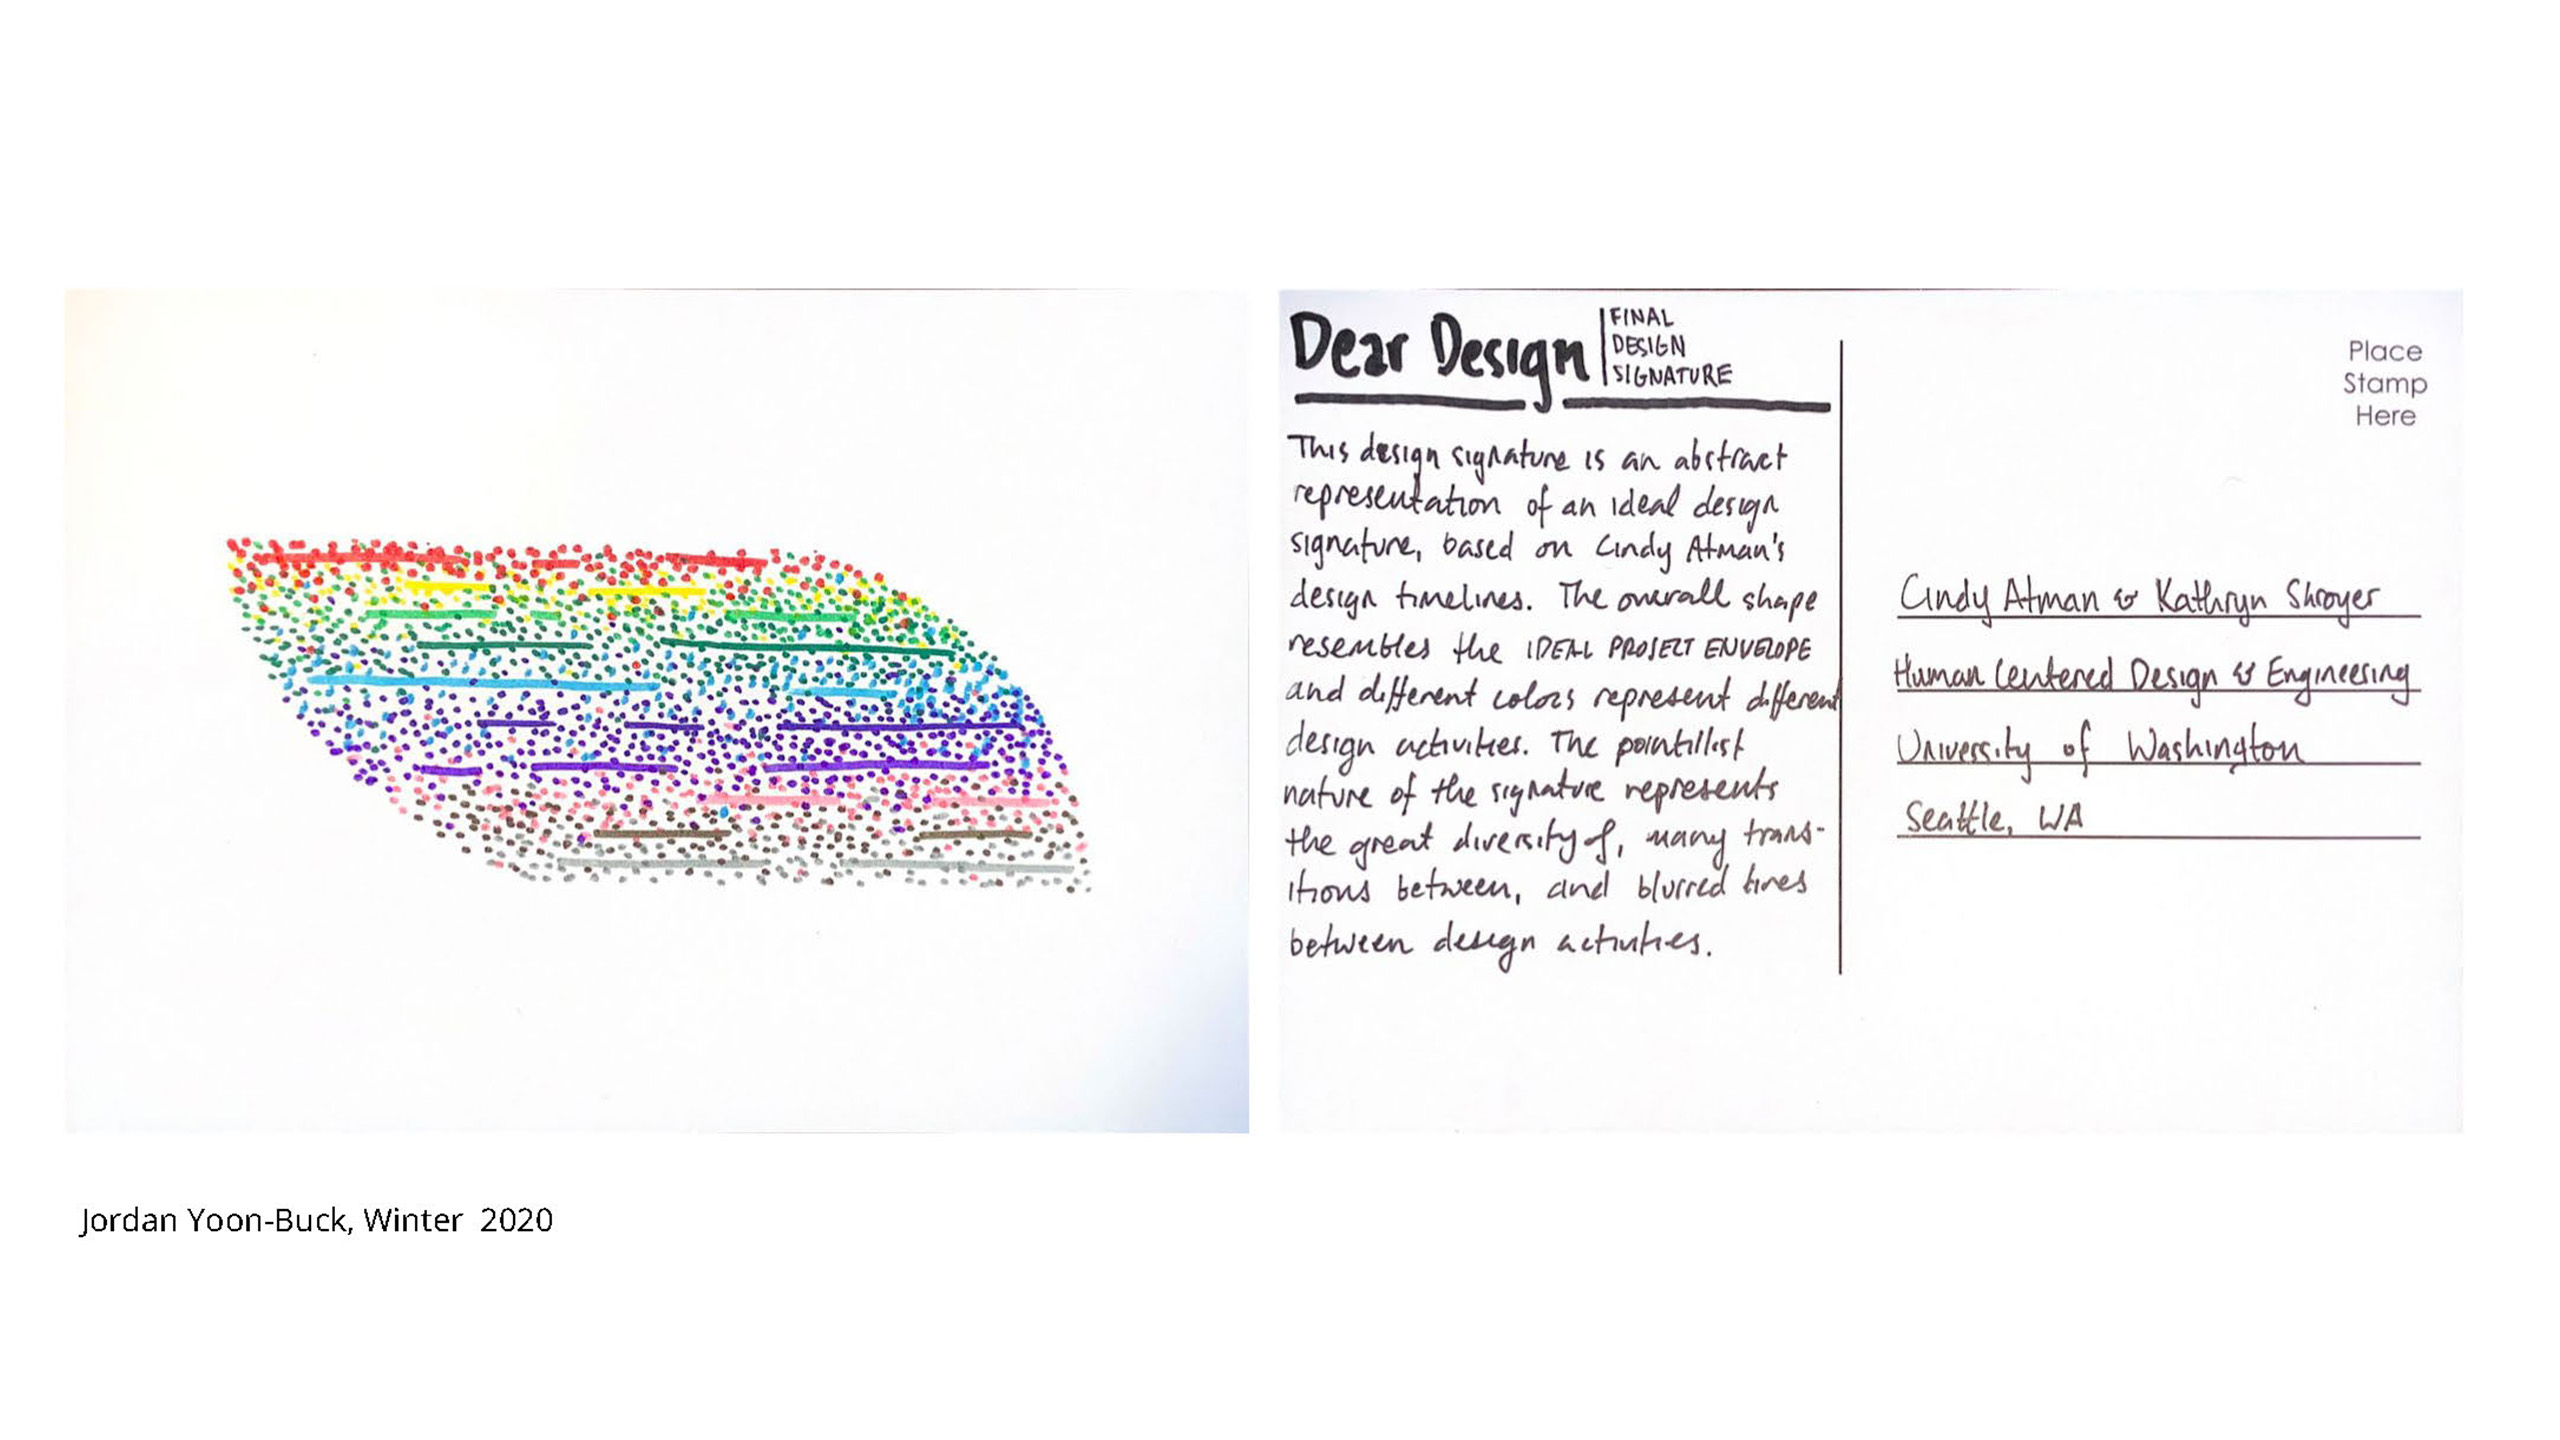 Dear Design
FINAL
DESIGN
SIGNATURE
This design signature is an abstract
representation of an ideal design
signature, based on Cindy Atman's
design timelines. The overall shape
resembles the IDEAL PROJECT ENVELOPE
and different colors represent different
design activities. The pointillist
nature of the signature represents
the great diversity of, many trans-
itions between, and blurred lines
between design activities.
Place
Stamp
Here
Cindy Atman & Kathryn Shroyer
Human Centered Design & Engineering
University of Washington
Seattle, WA
Jordan Yoon-Buck, Winter 2020